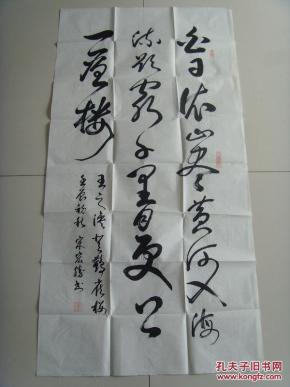 白日依山尽黄河入海
流欲穷千里目更上
一层楼
王之涣登鹳雀楼
壬辰初秋 宋宏书
孔夫子旧书网